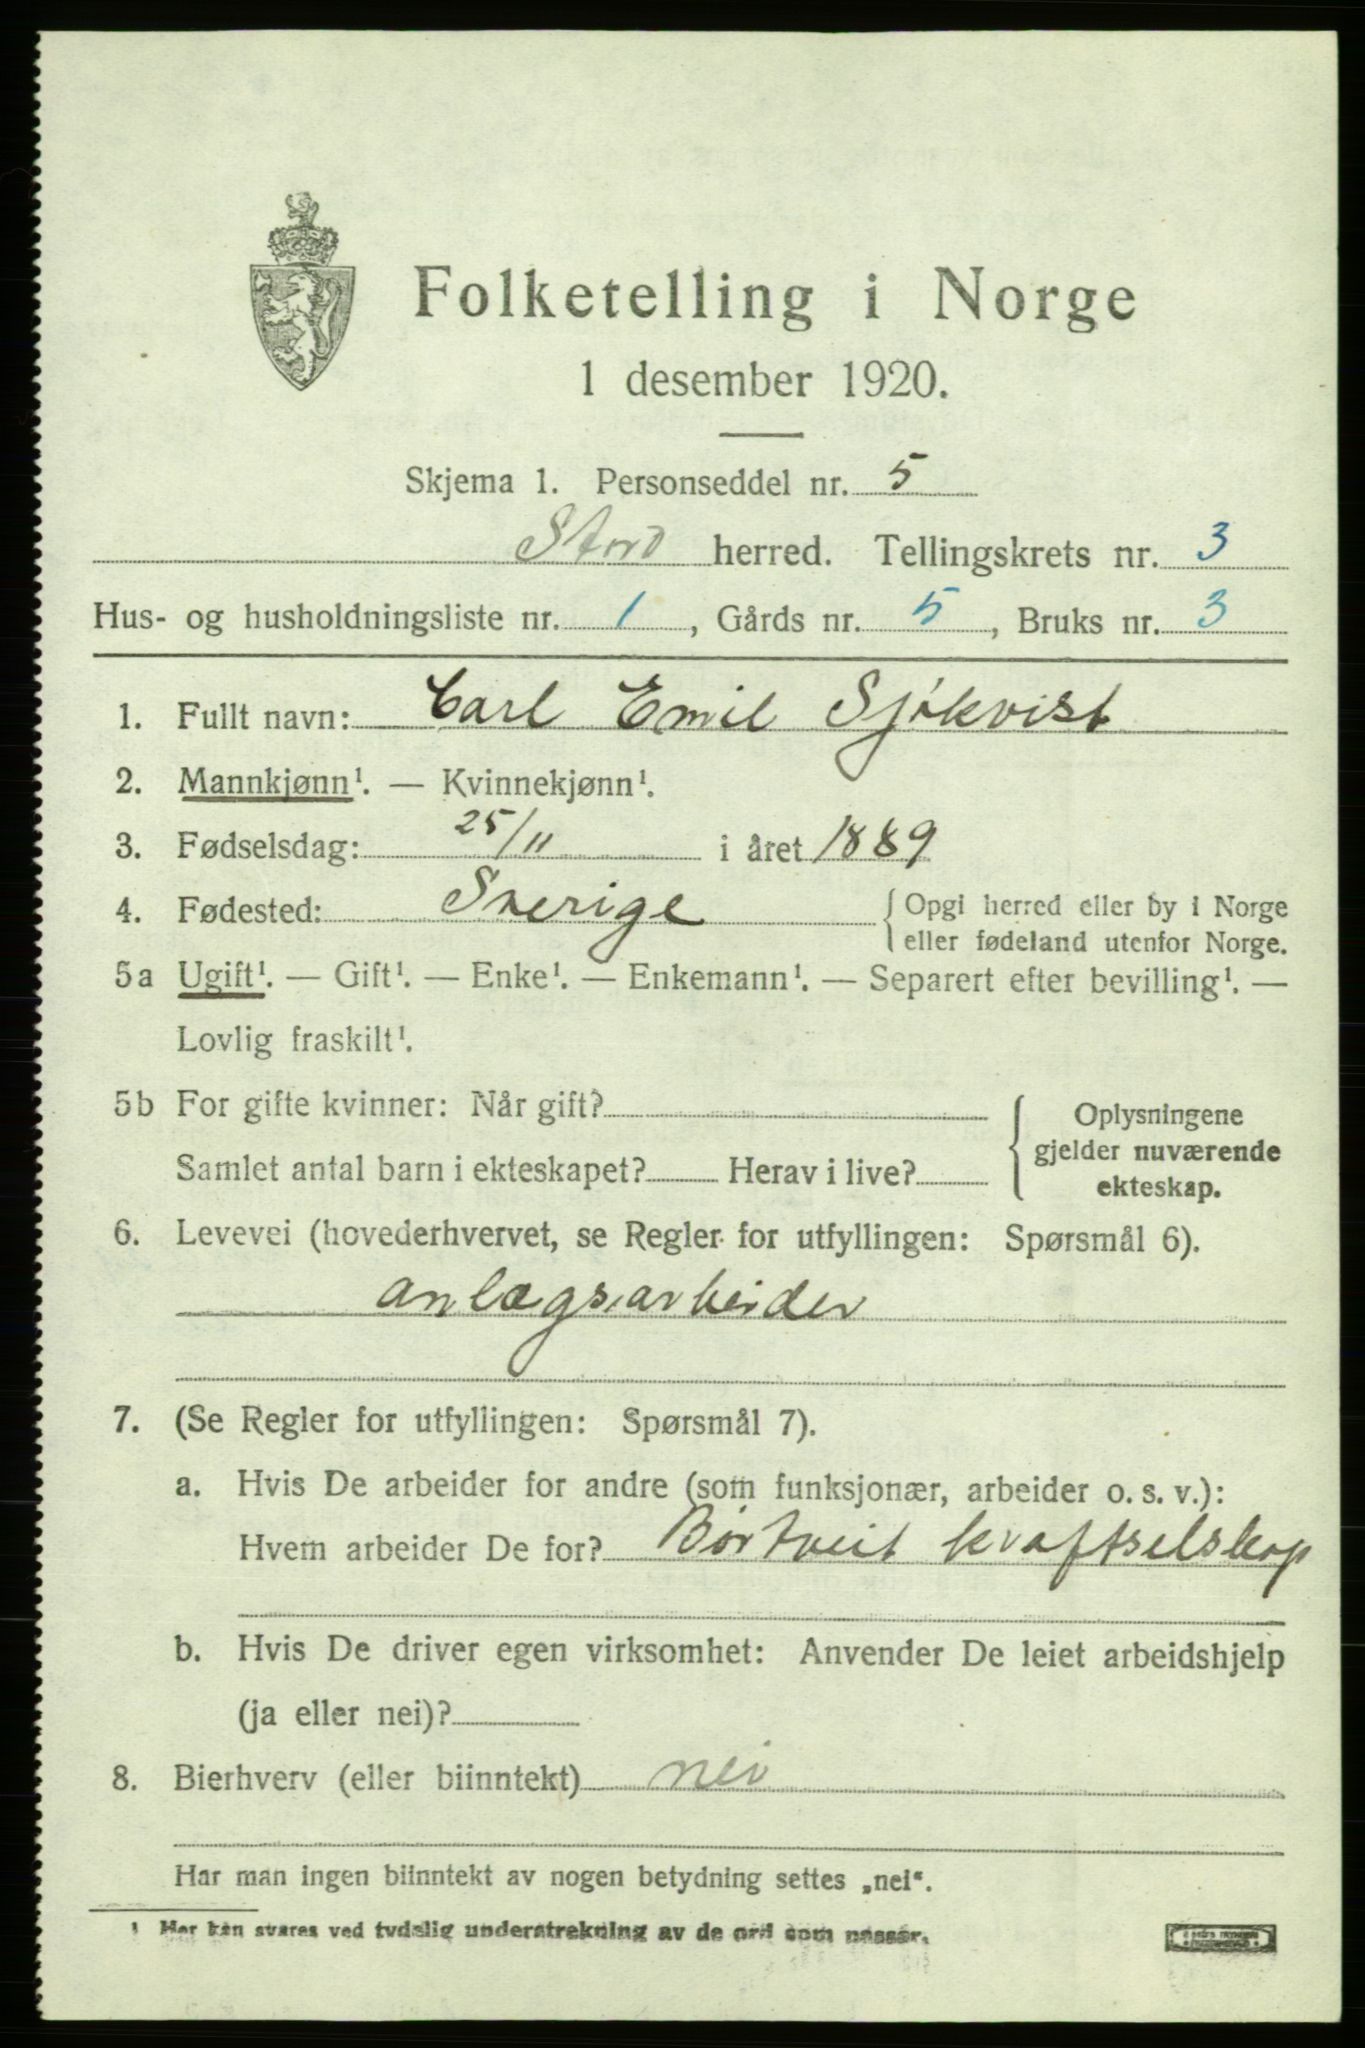 Folketelling i Norge
1 desember 1920.
Skjema 1. Personseddel nr. 5
Stord herred. Tellingskrets nr. 3
Hus- og husholdningsliste nr. 1, Gårds nr. 5, Bruks nr. 3
1. Fullt navn: Carl Emil Sjökvist
2. Mannkjønn¹. — Kvinnekjønn¹.
3. Fødselsdag: 25/11 i året 1889
4. Fødested: Sverige { Opgi herred eller by i Norge
eller fødeland utenfor Norge.
5a Ugift¹. — Gift¹. — Enke¹. — Enkemann¹. — Separert efter bevilling¹. —
Lovlig fraskilt¹.
5b For gifte kvinner: Når gift?
Samlet antal barn i ekteskapet? Herav i live?
Oplysningene
gjelder nuværende
ekteskap.
6. Levevei (hovederhvervet, se Regler for utfyllingen: Spørsmål 6).
anlægsarbeider
7. (Se Regler for utfyllingen: Spørsmål 7).
a. Hvis De arbeider for andre (som funksjonær, arbeider o. s. v.):
Hvem arbeider De for? Børtveit kraftselskap
b. Hvis De driver egen virksomhet: Anvender De leiet arbeidshjelp
(ja eller nei)?
8. Bierhverv (eller biinntekt) nei
Har man ingen biinntekt av nogen betydning settes „nei“.
¹ Her kan svares ved tydelig understrekning av de ord som passer.